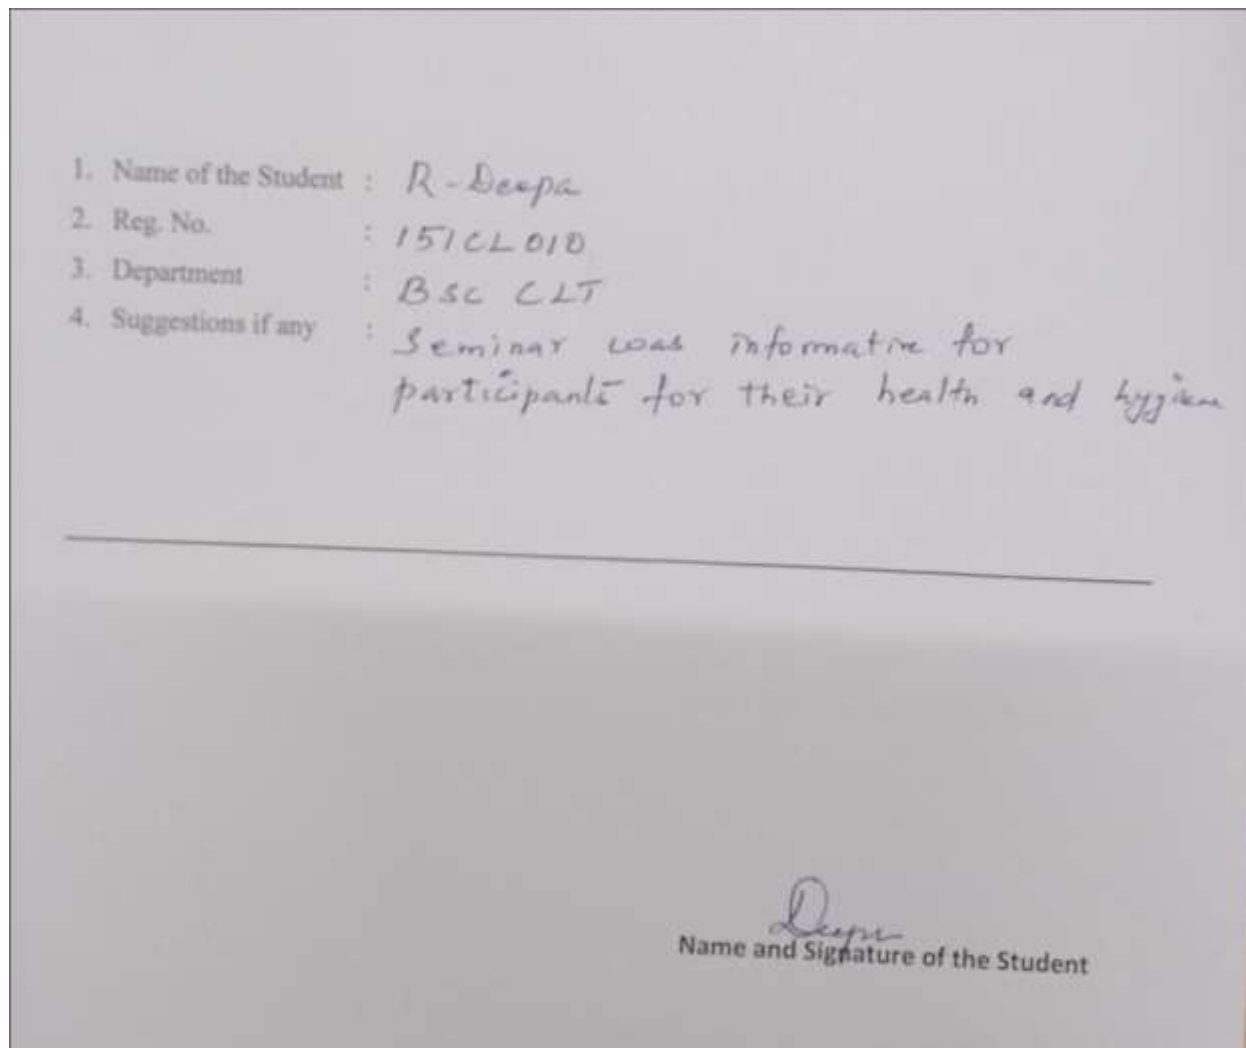 1. Name of the Student : R - Deepa
2. Reg. No. : 151CL010
3. Department : BSC CLT
4. Suggestions if any : Seminar was informative for
participants for their health and hygiene
Deepa
Name and Signature of the Student